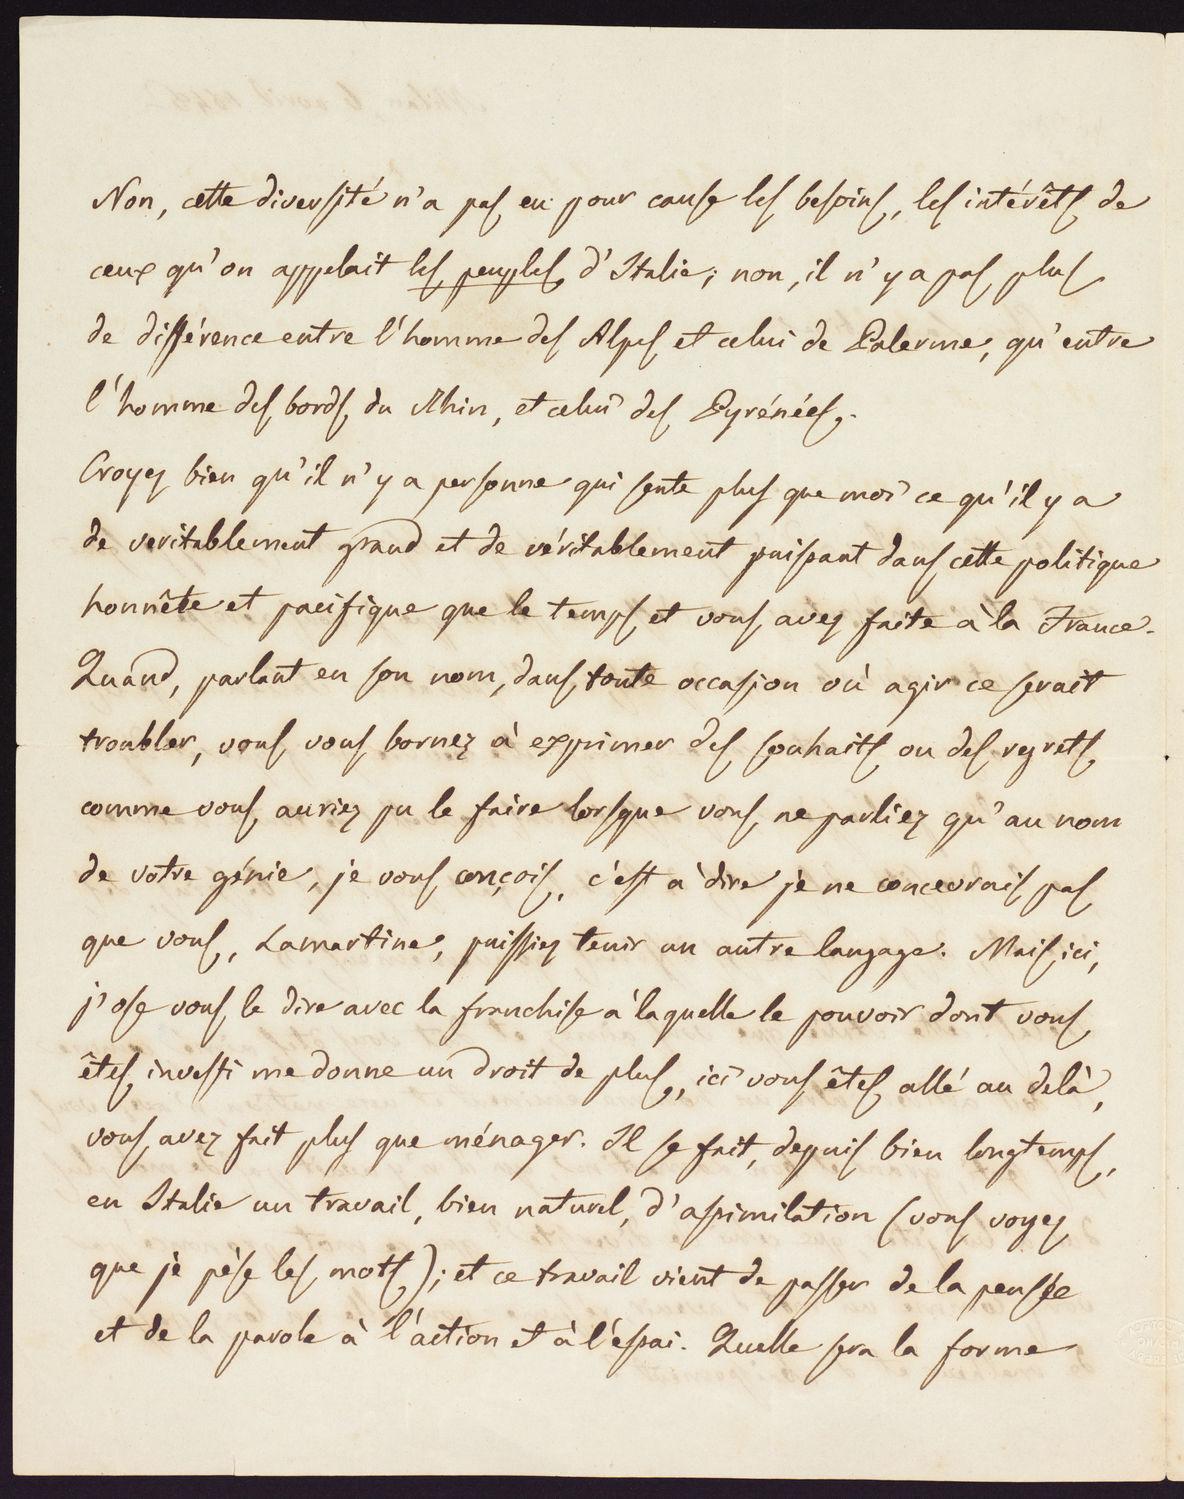 Non, cette diversité n'a pas eu pour cause les besoins, les intérêts de
ceux qu'on appelait les peuples d'Italie; non, il n'y a pas plus
de différence entre l'homme des Alpes et celui de Palerme, qu'entre
l'homme des bords du Rhin, et celui des Pyrénées.
Croyez bien qu'il n'y a personne qui sente plus que moi ce qu'il y a
de veritablement grand et de véritablement puissant dans cette politique
honnête et pacifique que le temps et vous avez faite à la France.
Quand, parlant en son nom, dans toute occasion où agir ce serait
troubler, vous vous bornez à exprimer des souhaits ou des regrets
comme vous auriez pu le faire lorsque vous ne parliez qu'au nom
de votre génie, je vous conçois, c'est à dire je ne concevrais pas
que vous, Lamartine, puissiez tenir un autre langage. Mais ici,
j'ose vous le dire avec la franchise à laquelle le pouvoir dont vous
êtes investi me donne un droit de plus, ici vous êtes allé au delà,
vous avez fait plus que ménager. Il se fait, depuis bien longtemps,
en Italie un travail, bien naturel, d'assimilation (vous voyez
que je pèse les mots); et ce travail vient de passer de la pensée
et de la parole à l'action et à l'essai. Quelle sera la forme